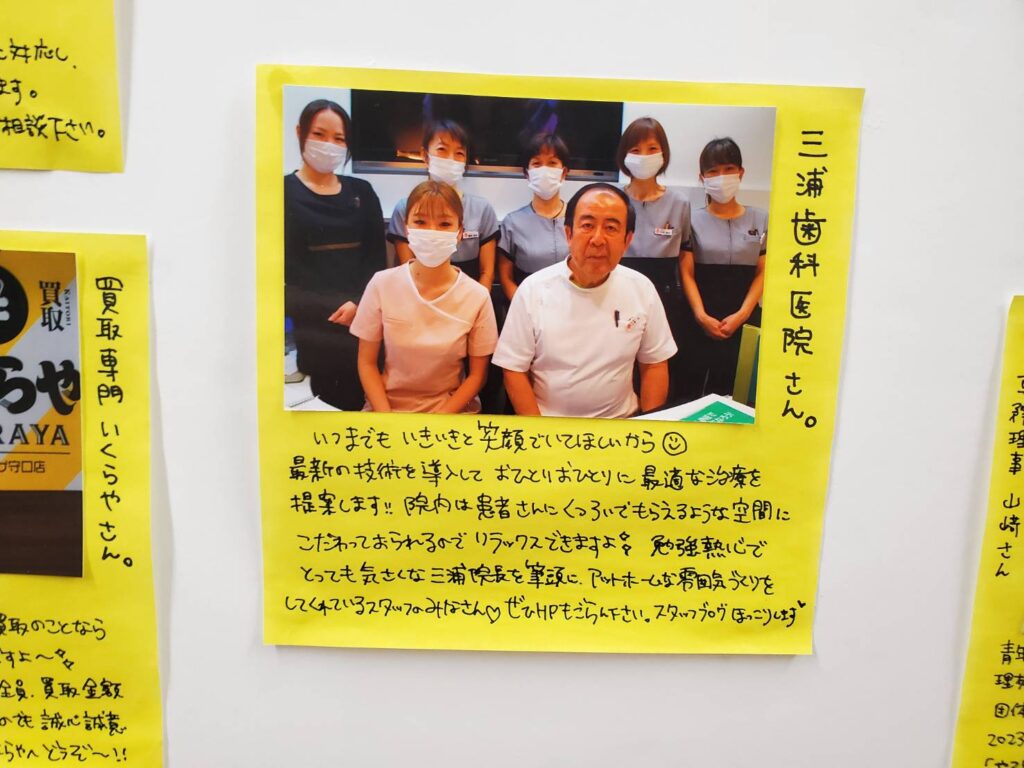 に対応し、
ます。
相談下さい。
買取
KAITORI
らや
RAYA
守口店
買取専門 いくらやさん。
買取のことなら
すよ〜
全員、買取金額
のでも 誠心誠意
らやへどうぞ〜!!
三浦歯科医院さん。
いつまでも いきいきと 笑顔でいてほしいから☺
最新の技術を導入して おひとりおひとりに 最適な治療を
提案します!! 院内は患者さんにくつろいでもらえるような空間に
こだわっておられるので リラックスできますよ 勉強熱心で
とっても気さくな 三浦院長を筆頭に、アットホームな雰囲気づくりを
してくれているスタッフのみなさん♡ ぜひHPもごらん下さい。スタッフブログ ほっこりします♥
理事 山崎さん
青年
理事
団体
2023